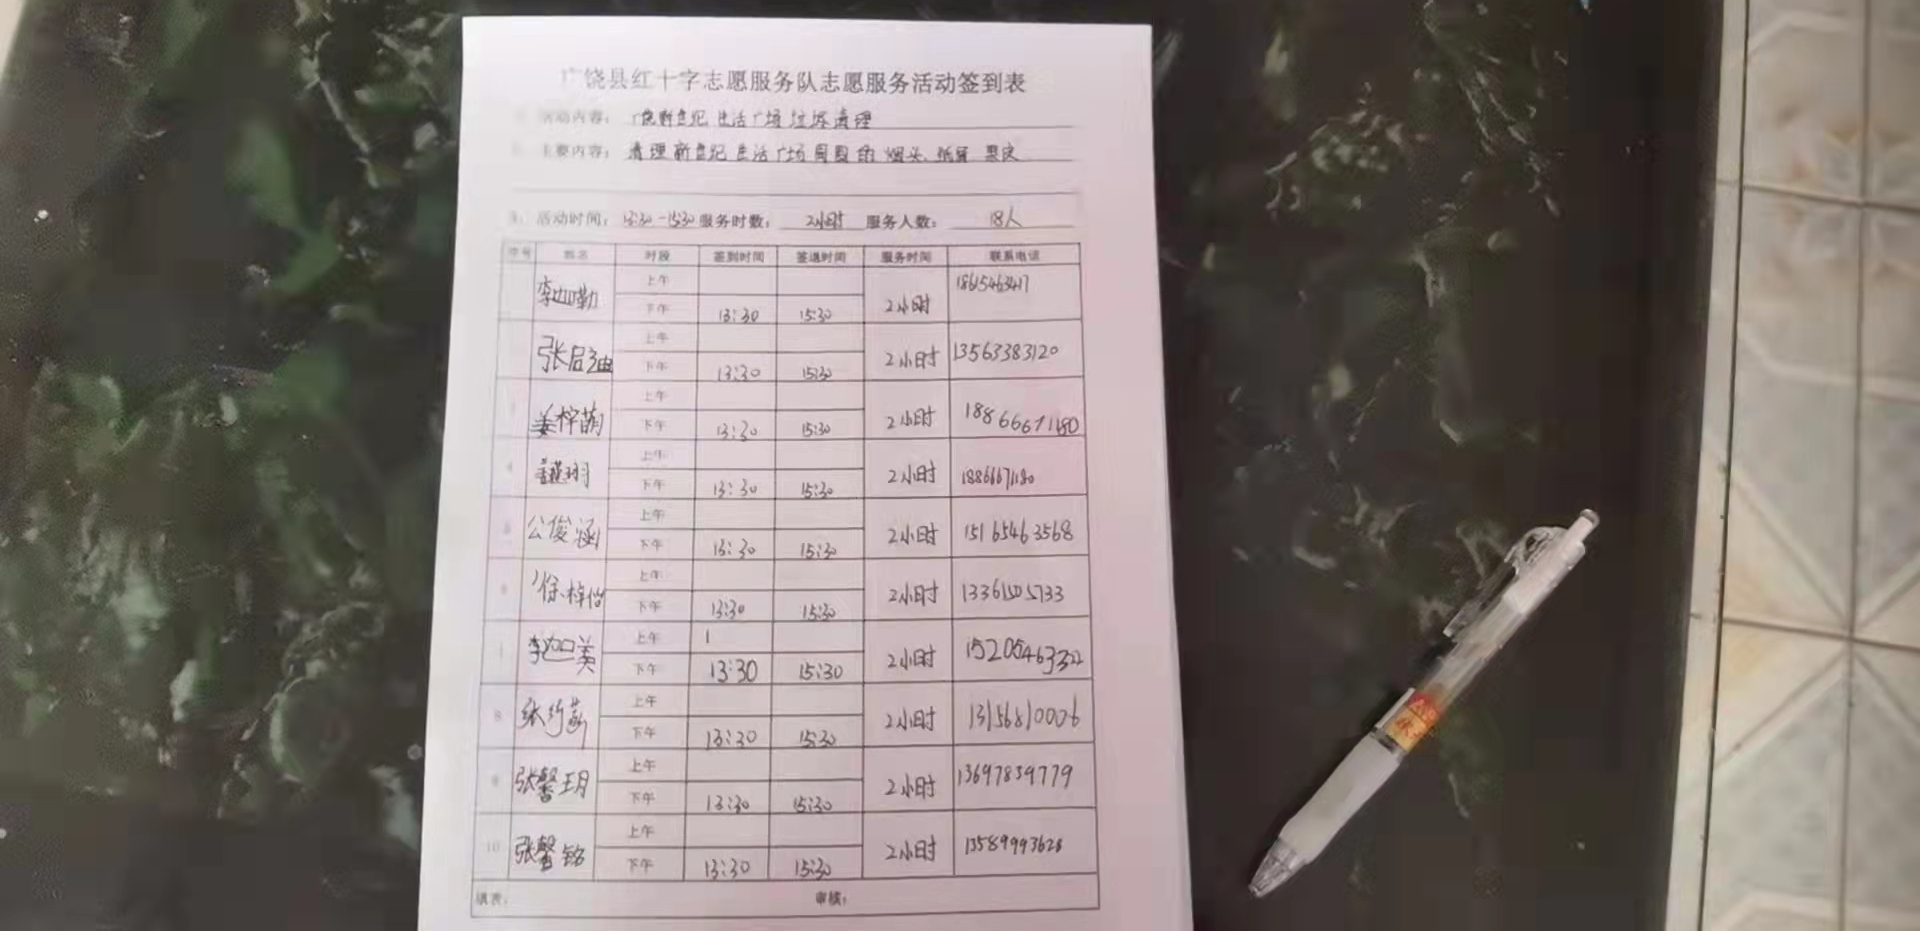 广饶县红十字志愿服务队志愿服务活动签到表
活动内容： 广饶新世纪生活广场垃圾清理
主要内容： 清理新世纪生活广场周围的烟头 纸屑 果皮
活动时间： 13:30-15:30 服务时数： 2小时 服务人数： 18人
序号 姓名 时段 签到时间 签退时间 服务时间 联系电话
上午
李 2小时 18615463417
下午 13:30 15:30
上午
张启 2小时 13563383120
下午 13:30 15:30
上午
姜柠萌 2小时 18866671180
下午 13:30 15:30
4 上午
2小时 18866671180
下午 13:30 15:30
上午
公俊涵 2小时 15165463568
下午 13:30 15:30
上午
徐梓 2小时 13361505733
下午 13:30 15:30
上午
李 美 2小时 15205463322
下午 13:30 15:30
8 上午
张 2小时 13156810006
下午 13:30 15:30
9 上午
张馨玥 2小时 13697839779
下午 13:30 15:30
10 上午
张馨铭 2小时 13589993628
下午 13:30 15:30
填表： 审核：